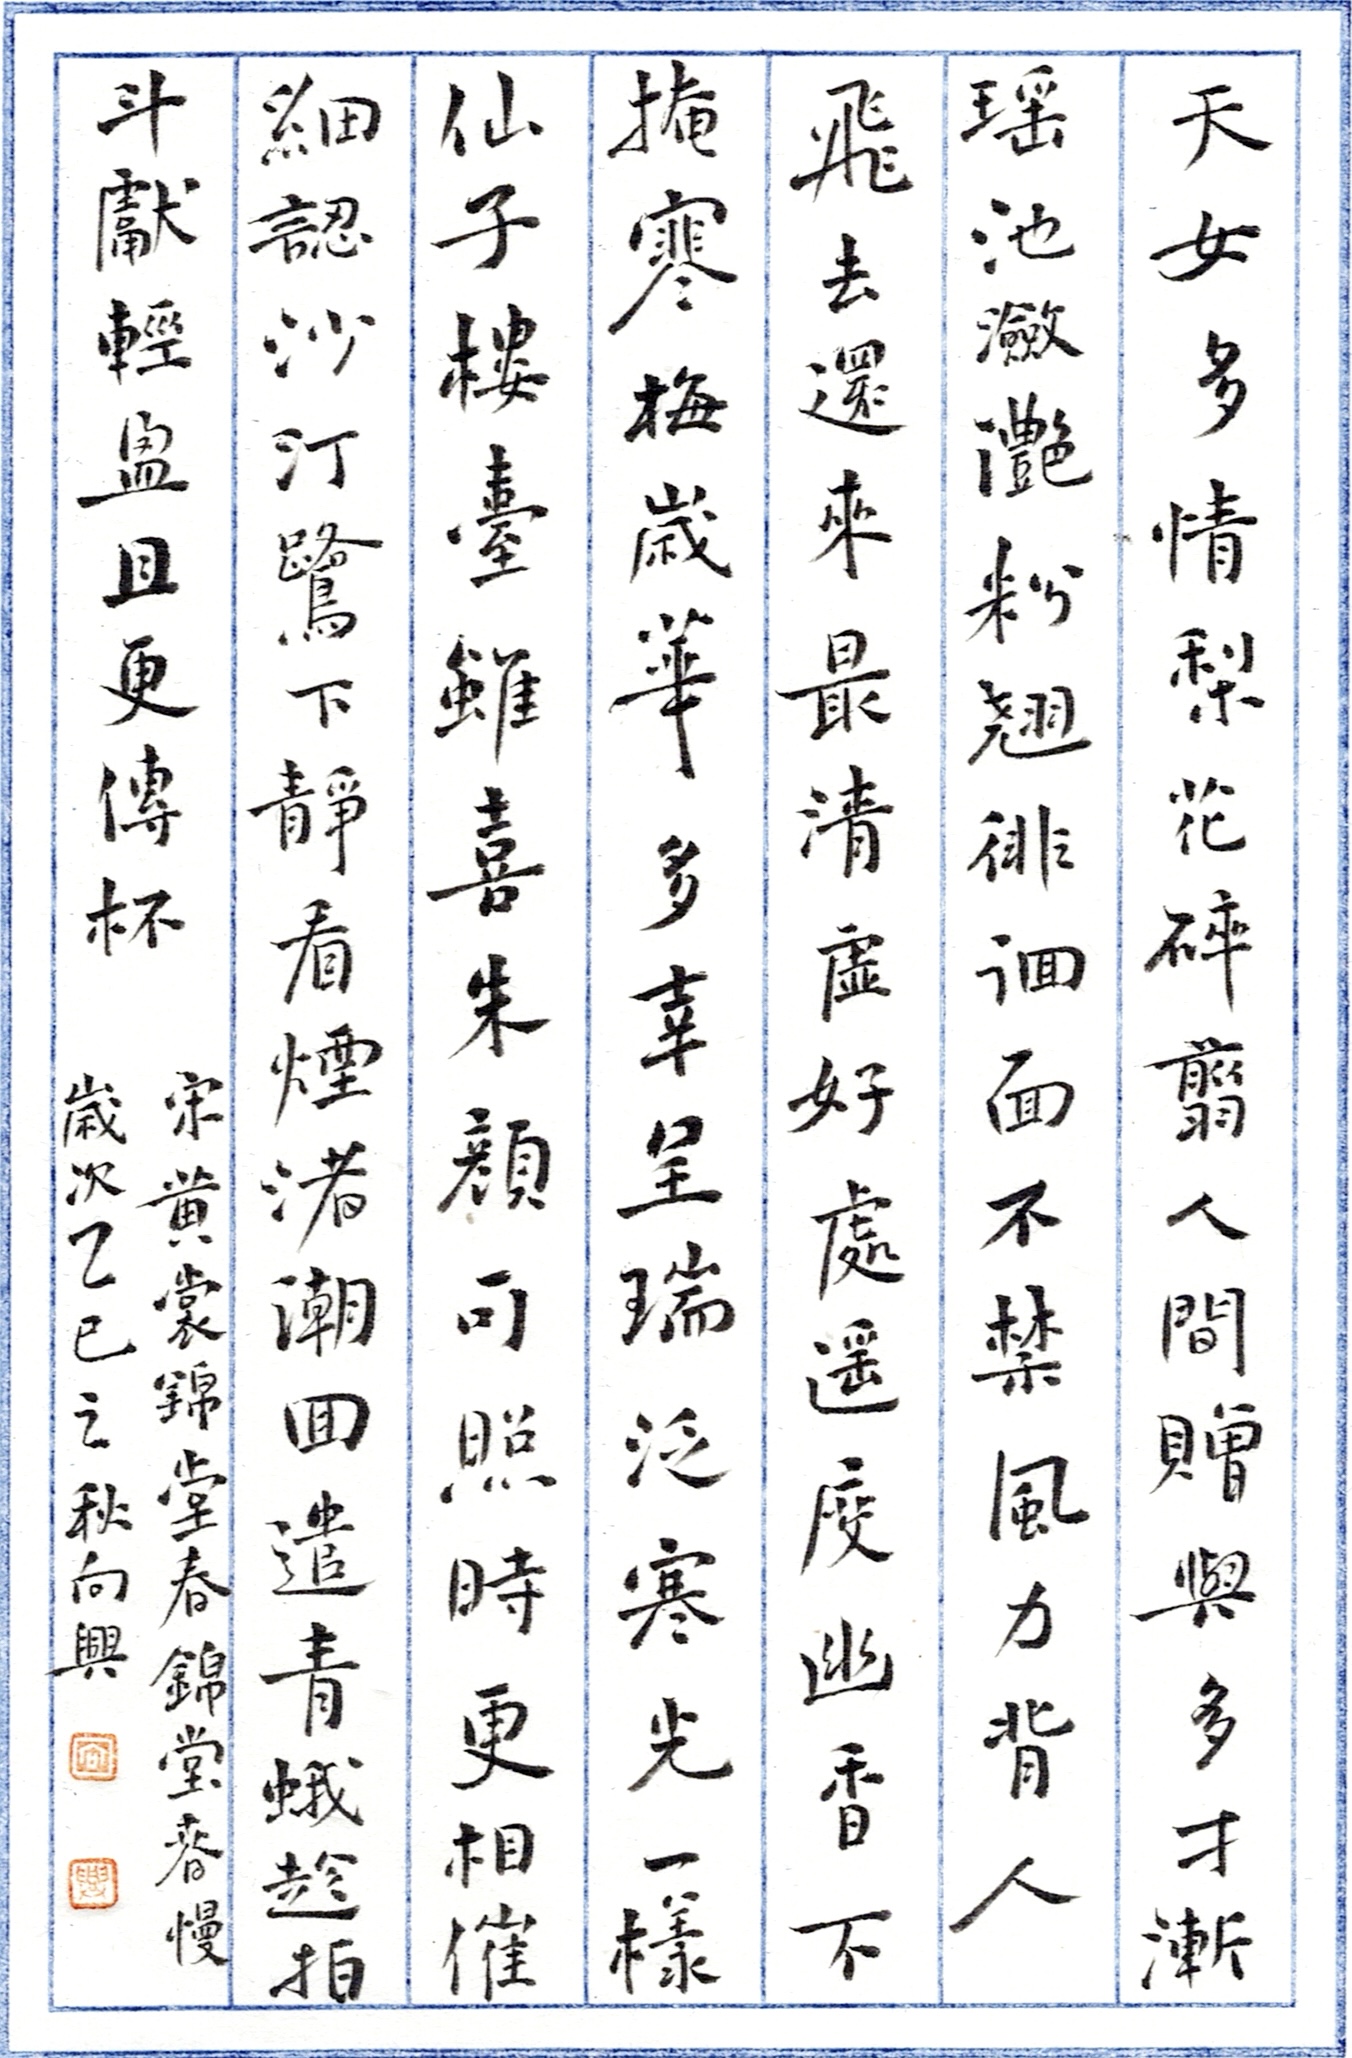 天女多情梨花碎翦人間贈與多才漸
瑤池瀲灩粉翹徘徊面不禁風力背人
飛去還來最清虛好處遥度幽香不
掩寒梅歲華多幸呈瑞泛寒光一樣
仙子樓臺雖喜朱顏可照時更相催
細認沙汀鷺下靜看煙渚潮回遣青蛾趁拍
斗獻輕盈且更傳杯
宋黃裳錦堂春錦堂春慢
歲次乙巳之秋向興
向
興